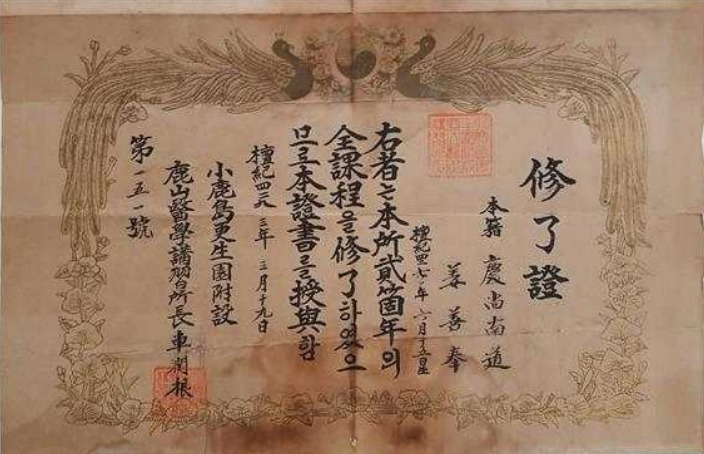 修了證
本籍 慶尚南道
姜善奉
檀紀四二七〇年 六月十五日生
右者는本所貳箇年의
全課程을修了하였으
므로本證書를授與함
檀紀四二八三年 三月十九日
小鹿島更生園附設
鹿山醫學講習所長 車潤根
第一五一號